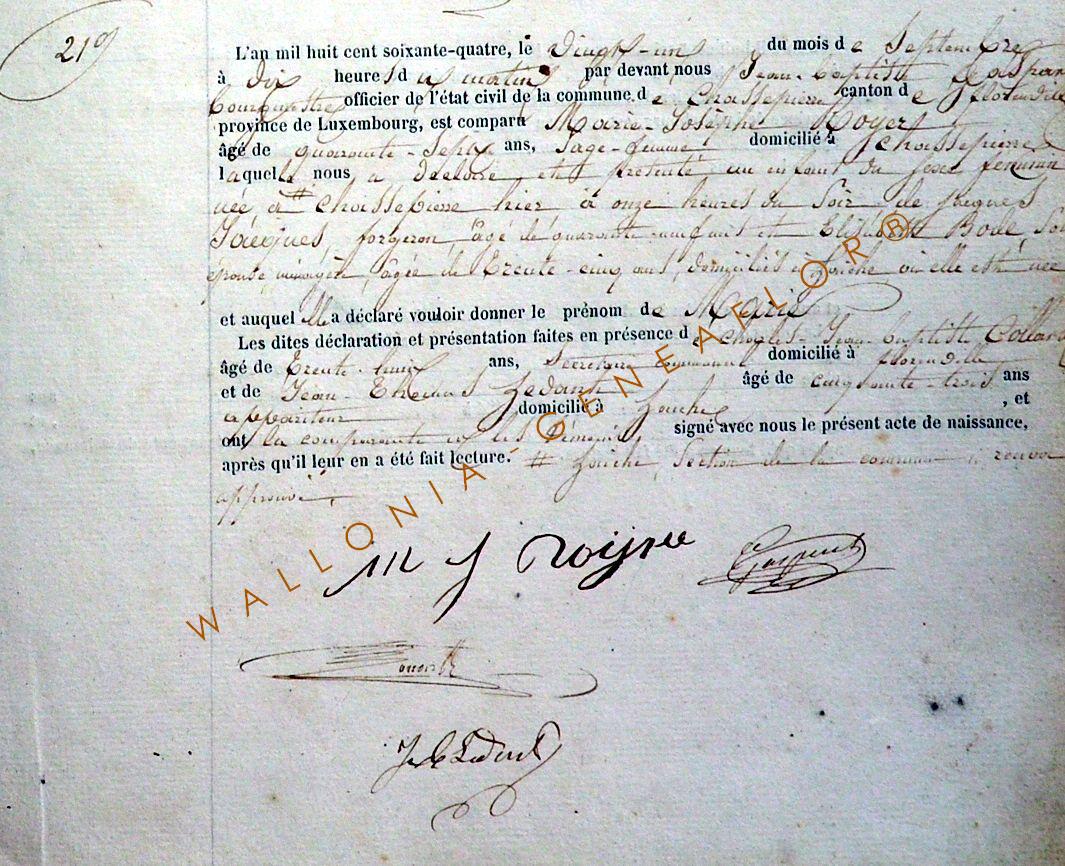 219
L'an mil huit cent soixante-quatre, le Vingt-un du mois de Septembre
à Dix heures du matin par devant nous Jean-Baptiste Gaspard
Bourgmestre officier de l'état civil de la commune de Chassepierre canton de Florenville
province de Luxembourg, est comparu Marie-Josèphe Royer
âgé de quarante-sept ans, Sage-femme domicilié à Chassepierre
laquelle nous a déclaré et présenté un enfant du sexe féminin
née à # Chassepierre hier à onze heures du Soir de
Jacques, forgeron, âgé de quarante-neuf ans et Elisabeth Bodé Son
épouse, ménagère, âgée de trente-cinq ans, domiciliés à où elle est née
et auquel elle a déclaré vouloir donner le prénom de Marie
Les dites déclaration et présentation faites en présence de Charles-Jean-Baptiste Collard
âgé de trente-huit ans, Secrétaire communal domicilié à Florenville
et de Jean- âgé de cinquante-trois ans
appariteur domicilié à , et
ont la comparante et les témoins signé avec nous le présent acte de naissance,
après qu'il leur en a été fait lecture. # Section de la commune renvoi
approuvé.
WALLONIA-GENEAFLOR®
m j roijre
Gaspard